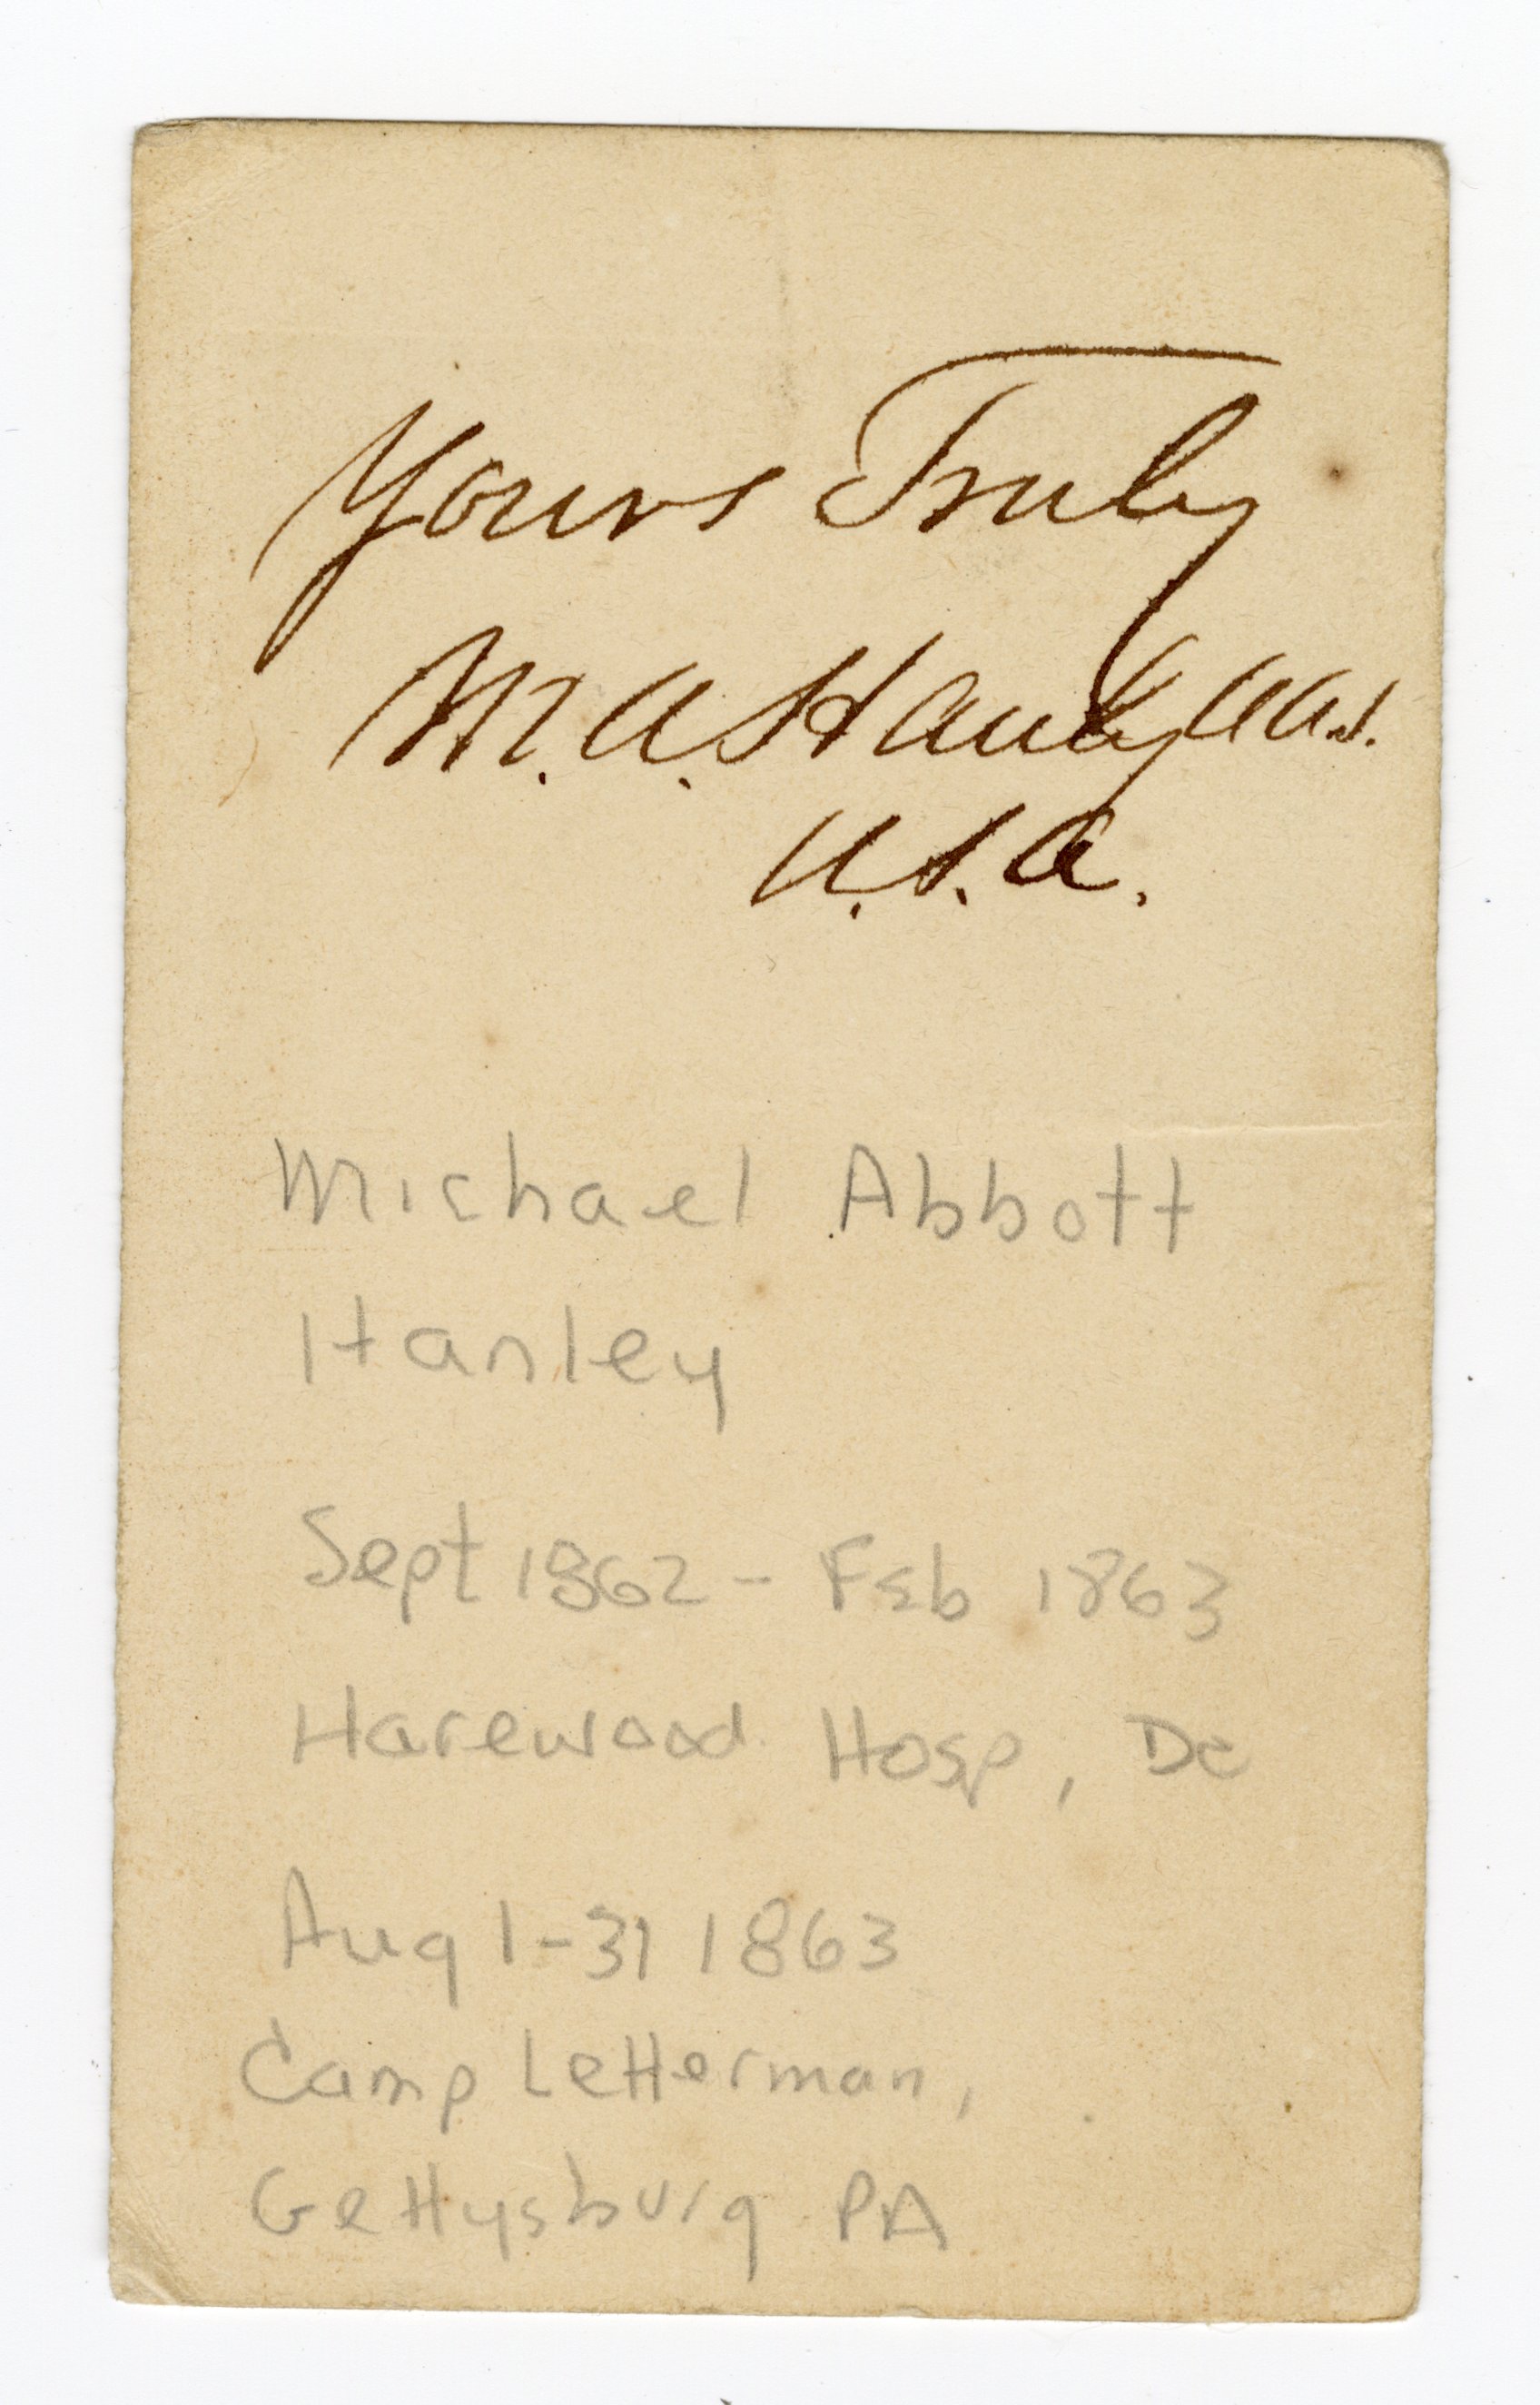 Yours Truly
M. A. Hanley A.A.S.
U.S.A.
Michael Abbott
Hanley
Sept 1862 - Feb 1863
Harewood Hosp, DC
Aug 1-31 1863
Camp Letterman,
Gettysburg PA